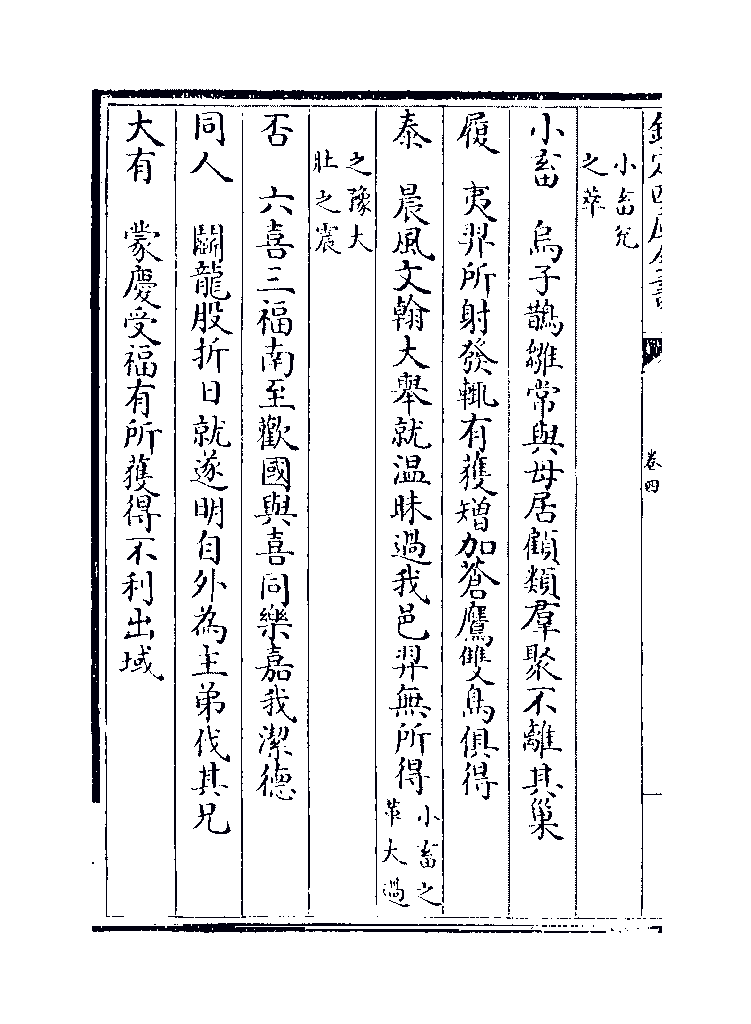 欽定四庫全書
卷四
小畜兊
之萃
小畜　烏子鵲雛常與母居顧類羣聚不離其巢
履　夷羿所射發輒有獲矰加蒼鷹雙鳥俱得
泰　晨風文翰大舉就温昧過我邑羿無所得小畜之革大過
之豫大
壯之震
否　六喜三福南至歡國與喜同樂嘉我潔德
同人　鬭龍股折日就遂明自外為主弟伐其兄
大有　蒙慶受福有所獲得不利出域